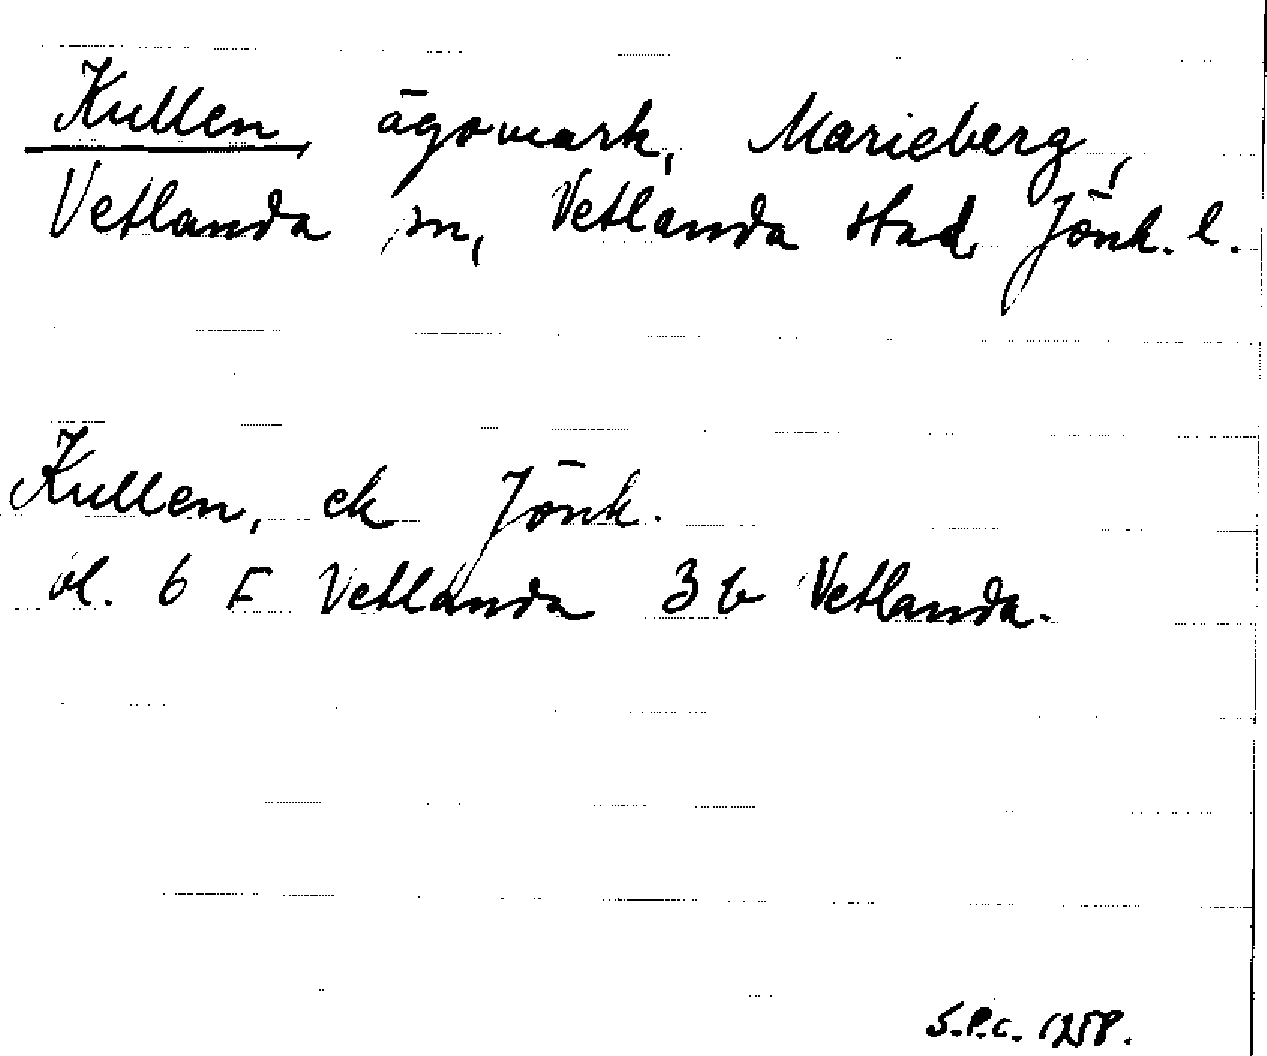 Kullen, ägomark, Marieberg,
Vetlanda sn, Vetlanda stad Jönk. l.
Kullen, ek Jönk.
bl. 6 F Vetlanda 3 b Vetlanda.
S.P.C. 1258.